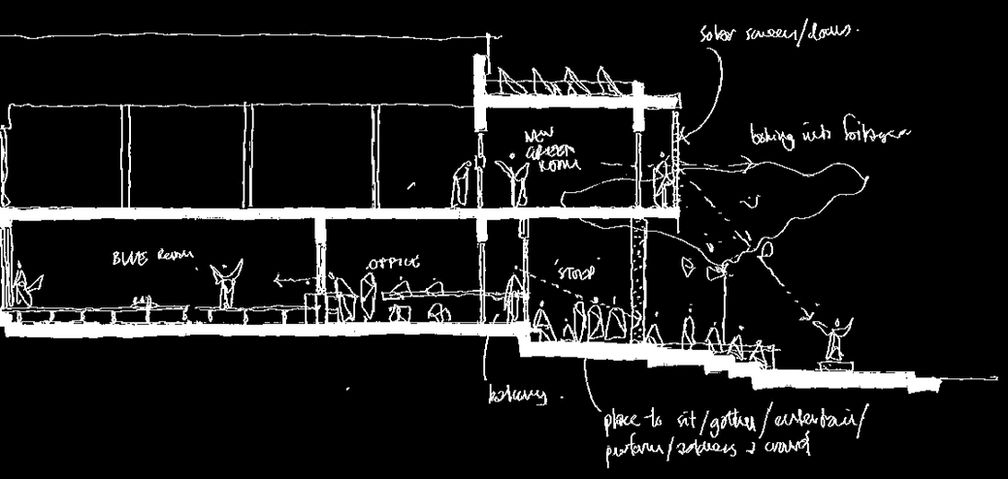 solar screen/louvs.
NEW
GREEN
ROOM
looking into
BLUE ROOM
OFFICE
'STOEP'
balcony.
place to sit/gather/entertain/
perform/address a crowd